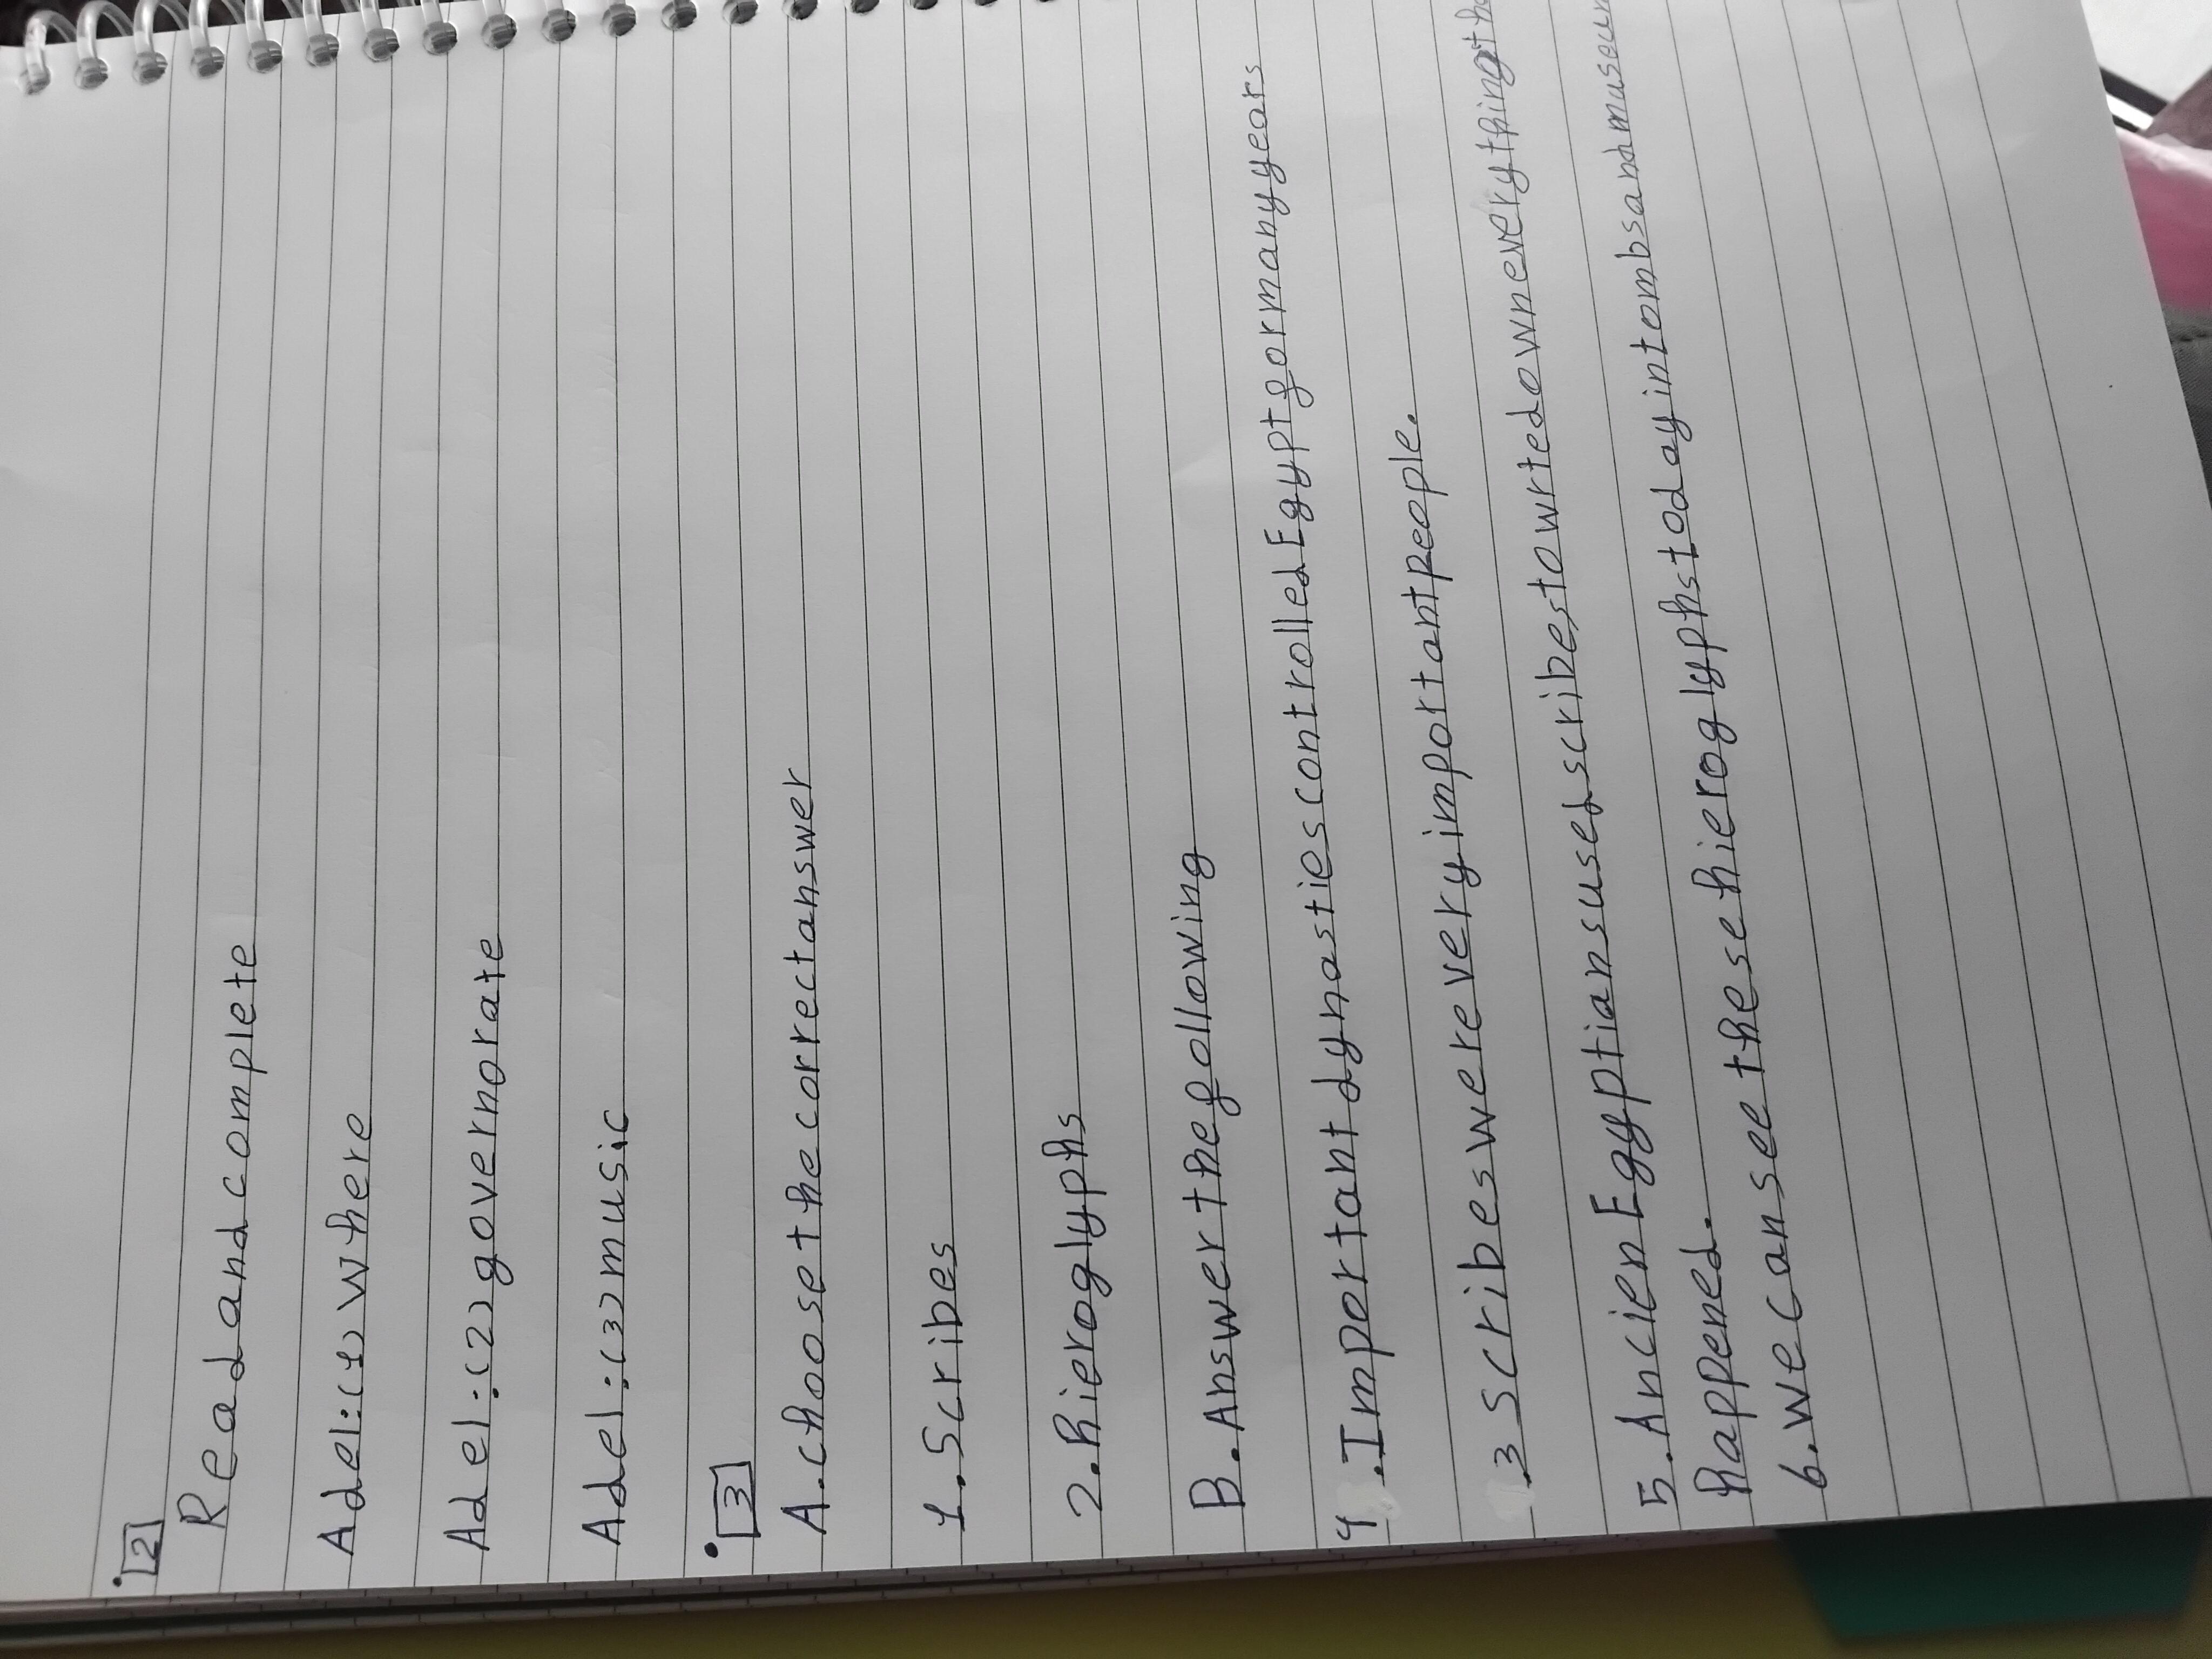 2
Read and complete
Adel:(1) Where
Adel:(2) governorate
Adel:(3) music
3
A.choose the correct answer
1.Scribes
2.hieroglyphs
B.Answer the following
4.Important dynasties controlled Egypt for many years
3 Scribes were very important people.
5.Ancien Egyptians used scribes to write down everything
happened.
6.we can see these hieroglyphs today in tombs and museum